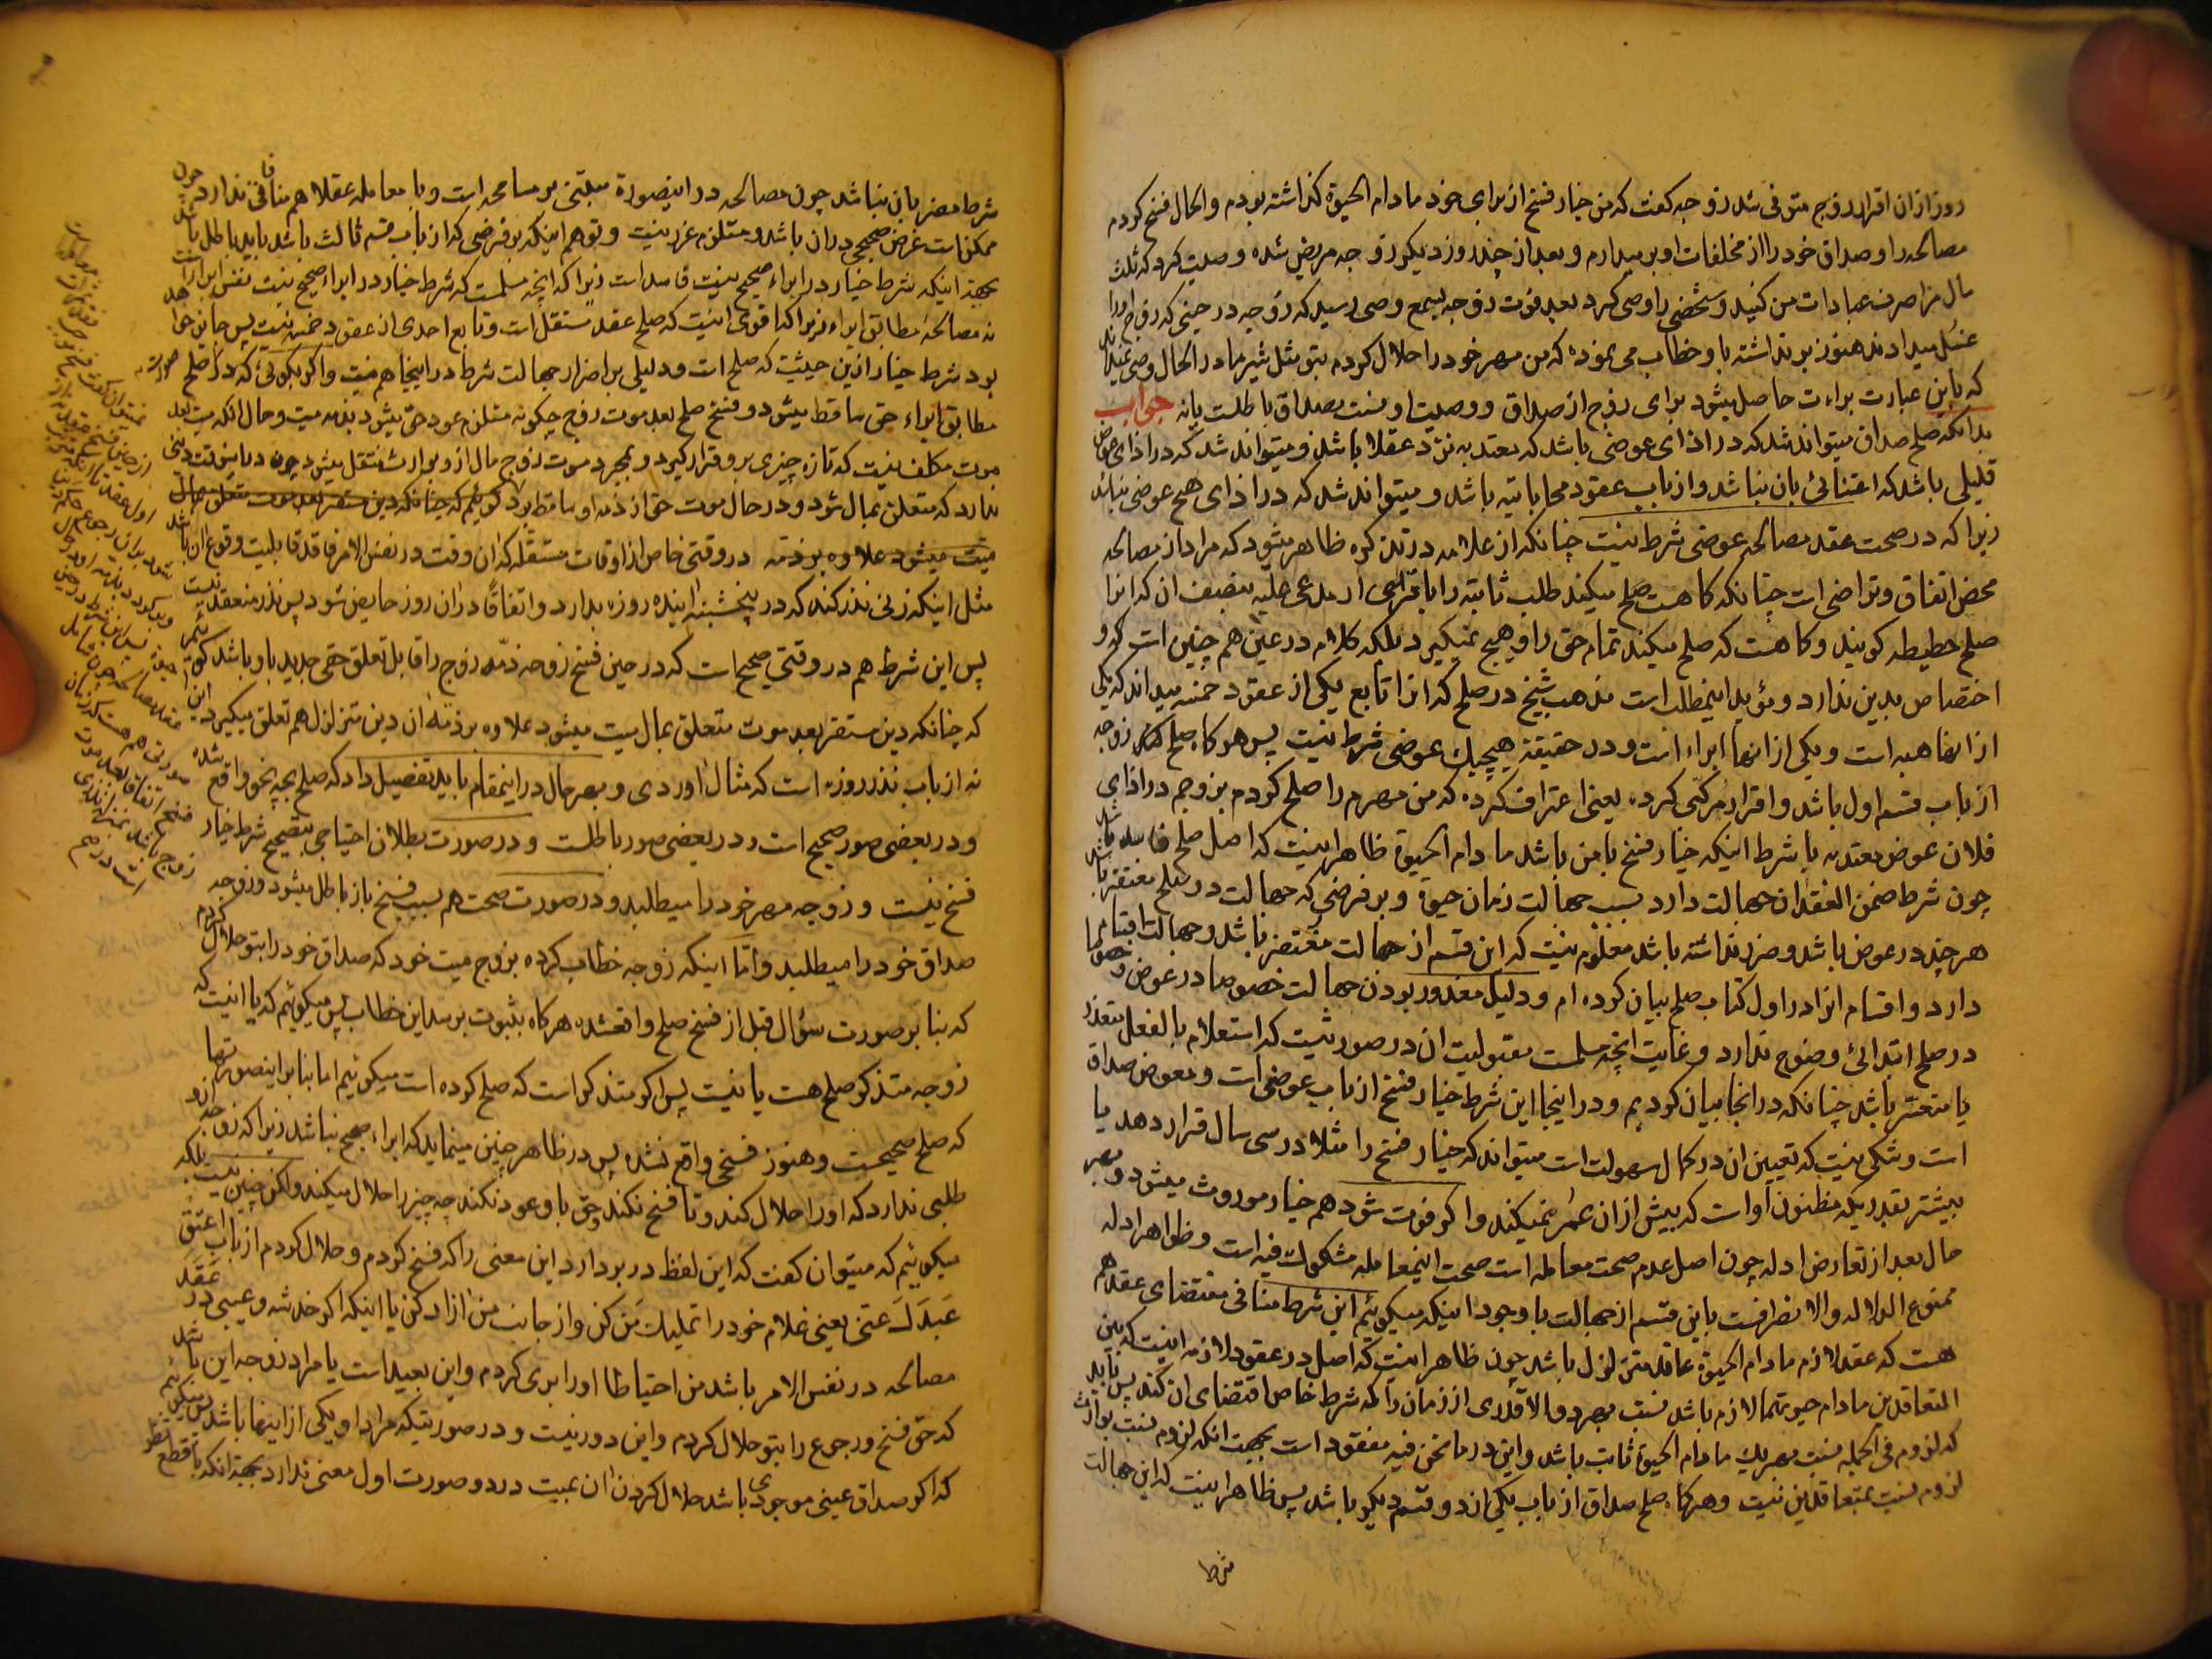 روز ازان اقرار زوج متوفی شد زوجه گفت که من خیار فسخ از برای خود مادام الحیوة گذاشته بودم والحال فسخ کردم
مصالحه را و صداق خود را از مخلفات او بر میدارم و بعد از چند روز دیگر زوجه مریض شده وصیت کرد که ثلث
مال مرا صرف عبادات من کنید و شخصی را وصی کرد بعد فوت زوجه بسمع وصی رسید که زوجه در حینی که زوج اورا
غسل میدادند هنوز بر نداشته باو خطاب می نموده که من مهر خود را حلال کردم بتو مثل شیر مادر الحال وصی نمیداند
که باین عبارت براءت حاصل میشود برای زوج از صداق و وصیت او نسبت بصداق باطلست یا نه جواب
بدانکه صلح صداق میتواند شد که در ازای عوضی باشد که معتد به نزد عقلا باشد و میتواند شد که در ازای عوض
قلیلی باشد که اعتنائی بان نباشد و از باب عقود محاباتیه باشد و میتواند شد که در ازای هیچ عوضی نباشد
زیرا که در صحت عقد مصالحه عوضی شرط نیست چنانکه از علامه در تذکره ظاهر میشود که مراد از مصالحه
محض اتفاق و تراضی است چنانکه گاه هست صلح میکند طلب ثابته را باقراری از مدعی علیه بنصف ان که انرا
صلح حطیطه گویند و گاه هست که صلح میکند تمام حق را و هیچ نمیگیرد بلکه کلام در عین هم چنین است که او
اختصاص بدین ندارد و مؤید اینمطلب است مذهب شیخ در صلح که انرا تابع یکی از عقود خمسه میداند که یکی
از انها هبه است و یکی از انها ابراء است و در حقیقة هیچیک عوضی شرط نیست پس هر گاه صلح زوجه
از باب قسم اول باشد و اقرار مرکبی کرده یعنی اعتراف کرده که من مهرم را صلح کردم بزوجم در ازای
فلان عوض معتد به با شرط اینکه خیار فسخ با من باشد مادام الحیوة ظاهر اینست که اصل صلح فاسد باشد
چون شرط ضمن العقد ان جهالت دارد بسبب جهالت زمان حیوة و بر فرضی که جهالت در صلح مغتفر باشد
هر چند در عوض باشد و ضرر نداشته باشد معلوم نیست که این قسم از جهالت مغتفر باشد و جهالت اقسام
دارد و اقسام انرا در اول کتاب صلح بیان کرده ام و دلیل معذور بودن جهالت خصوصا در عوض و خصوصا
در صلح ابتدائی وضوح ندارد و غایت انچه مسلمست مقبولیت ان در صورتیست که استعلام بالفعل متعذر
یا متعسر باشد چنانکه در انجا بیان کردیم و در اینجا این شرط خیار فسخ از باب عوضی است و معوض صداق
است و شکی نیست که تعیین ان در کمال سهولت است میتواند که خیار فسخ را مثلا در سی سال قرار دهد یا
بیشتر بقدریکه مظنون او است که بیش از ان عمر نمیکند و اگر فوت شود هم خیار موروث میشود و بهر
حال بعد از تعارض ادله چون اصل عدم صحت معامله است صحت اینمعامله مشکوک فیه است و ظواهر ادله
ممنوع الدلاله والانصرافست باین قسم از جهالت با وجود اینکه میگوئیم این شرط منافی مقتضای عقد هم
هست که عقد لازم مادام الحیوة عاقد متزلزل باشد چون ظاهر اینست که اصل در عقود لازمه اینست که بین
المتعاقدین مادام حیوتهما لازم باشد نسبت بهر دو الا قدری از زمان را که شرط خاص اقتضای ان کند پس باید
که لزوم فی الجمله نسبت بهر یک مادام الحیوة ثابت باشد و این در ما نحن فیه مفقود است بجهت انکه لزوم نسبت بوارث
لزوم نسبت بمتعاقدین نیست و هر گاه صلح صداق از باب یکی از دو قسم دیگر باشد پس ظاهر اینست که این جهالت
شرط
شرط مضر بان نباشد چون مصالحه در اینصورة مبتنی بر مسامحه است و با معامله عقلا هم منافی ندارد چون
ممکنات غرض صحیحی در ان باشد و مستلزم غرر نیست و توهم اینکه بر فرضی که از باب قسم ثالث باشد باید باطل باشد
بجهة اینکه شرط خیار در ابراء صحیح نیست فاسد است زیرا که انچه مسلمست که شرط خیار در ابراء صحیح نیست نفس ابراء است
نه مصالحه مطابق ابراء زیرا که اقوی اینست که صلح عقد مستقل است و تابع احدی از عقود خمسه نیست پس جایز خواهد
بود شرط خیار ازین حیثیت که صلح است و دلیلی بر اضرار جهالت شرط در اینجا هم نیست و اگر بگوئی که در صلح صورت
مطابق ابراء حق ساقط میشود و فسخ صلح بعد موت زوج چگونه مستلزم عود حق میشود بذمه میت و حال انکه میت بعد
موت مکلف نیست که تازه چیزی بر او قرار گیرد و بمجرد موت زوج مال از او بوارث منتقل میشود چون در این وقت دینی
ندارد که متعلق بمال شود و در حال موت حق از ذمه او ساقط بود گوئیم که چنانکه دین
میت میشود علاوه بر ذمه در وقتی خاص از اوقات مستقبله که ان وقت در نفس الامر فاقد قابلیت وقوع ان باشد
مثل اینکه زنی نذر کند که در پنجشنبه اینده روزه بدارد و اتفاقا دران روز حایض شود پس نذر منعقد نیست
پس این شرط هم در وقتی صحیح است که در حین فسخ زوجه ذمه زوج را قابل تعلق حقی جدید باو باشد گوئیم
که چنانکه دین مستقر بعد موت متعلق بمال میت میشود علاوه بر ذمه ان دین متزلزل هم تعلق میگیرد این
نه از باب نذر روزه است که مثال اوردی و بهر حال در اینمقام باید تفصیل داد که صلح بچه نحو واقع شده
و در بعضی صور صحیح است و در بعضی صور باطلست و در صورت بطلان احتیاجی بتصحیح شرط خیار
فسخ نیست و زوجه مهر خود را میطلبد و در صورت صحت هم بسبب فسخ باز باطل میشود و زوجه
صداق خود را میطلبد و اما اینکه زوجه خطاب کرده بزوج میت خود که صداق خود را بتو حلال کردم
که بنا بر صورت سؤال قبل از فسخ صلح واقعشده هر گاه بثبوت برسد این خطاب پس میگوئیم که یا اینست که
زوجه متذکر صلح هست یا نیست پس اگر متذکر است که صلح کرده است میگوئیم اما بنا بر اینصورتها
که صلح صحیحست و هنوز فسخی واقع نشده پس در ظاهر چنین مینماید که ابراء صحیح نباشد زیرا که زوجه ازو
طلبی ندارد که او را حلال کند و تا فسخ نکند و حق باو عود نکند چه چیز را حلال میکند ولکن چنین نیست بلکه
میگوئیم که میتوان گفت که این لفظ در بر دارد این معنی را که فسخ کردم و حلال کردم از باب اعتق
عبدک عنی یعنی غلام خود را تملیک من کن و از جانب من ازاد کن یا اینکه اگر خدشه و عیبی در عقد
مصالحه در نفس الامر باشد من احتیاطا او را بری کردم و این بعید است یا مراد زوجه این باشد
که حق فسخ و رجوع را بتو حلال کردم و این دور نیست و در صورتیکه مراد او یکی از اینها باشد پس میگوئیم
که اگر صداق عینی موجودی باشد حلال کردن ان بمیت در دو صورت اول معنی ندارد بجهة انکه با قطع نظر